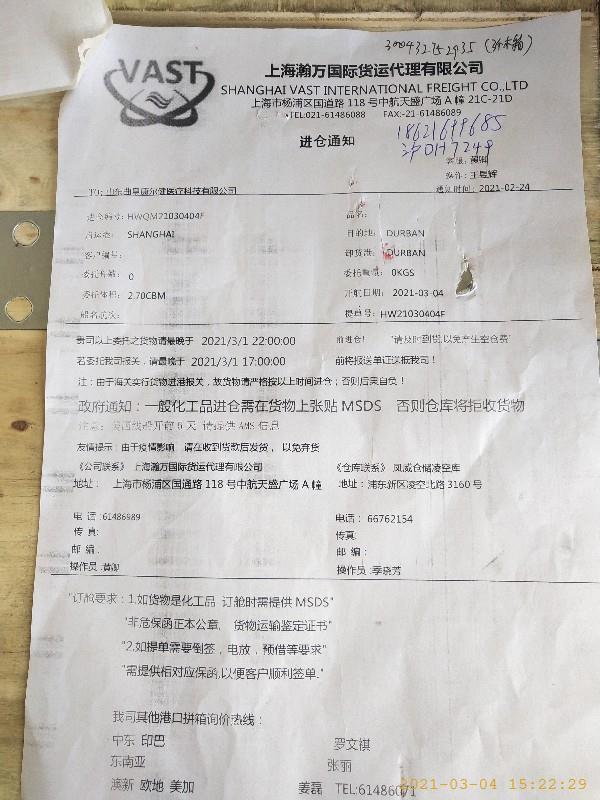 300432752935 (3个木箱)
VAST
上海瀚万国际货运代理有限公司
SHANGHAI VAST INTERNATIONAL FREIGHT CO.,LTD
上海市杨浦区国道路 118 号中航天盛广场 A 幢 21C-21D
TEL:021-61486088 FAX:-21-61486089
18621699685
沪DH7249
进仓通知
客服:
操作: 王昱辉
通知时间: 2021-02-24
TO: 山东曲阜康尔健医疗科技有限公司
进仓编号: HWQM21030404F 品名:
启运港: SHANGHAI 目的港: DURBAN
客户编号: 卸货港: DURBAN
委托件数: 0 委托重量: 0KGS
委托体积: 2.70CBM 开航日期: 2021-03-04
船名航次: 提单号: HW21030404F
贵司以上委托之货物请最晚于 2021/3/1 22:00:00 前进仓! "请及时到货,以免产生空仓费"
若委托我司报关,请最晚于 2021/3/1 17:00:00 前将报送单证送抵我司!
注:由于海关实行货物进港报关,故货物请严格按以上时间进仓;否则后果自负!
政府通知:一般化工品进仓需在货物上张贴 MSDS 否则仓库将拒收货物
注意: 美西线船开前 6 天 请提供 AMS 信息
友情提示:由于疫情影响 请在收到货款后发货,以免弃货
《公司联系》上海瀚万国际货运代理有限公司 《仓库联系》凤威仓储凌空库
地址: 上海市杨浦区国通路 118 号中航天盛广场 A 幢 地址:浦东新区凌空北路 3160 号
电 话:61486989 电话: 66762154
传 真: 传真:
邮 编: 邮 编:
操作员:黄卿 操作员:季晓芳
"订舱要求:1.如货物是化工品 订舱时需提供 MSDS"
"非危保函正本公章、货物运输鉴定证书"
"2.如提单需要倒签,电放,预借等要求"
"需提供相对应保函,以便客户顺利签单."
我司其他港口拼箱询价热线:
中东 印巴 罗文祺
东南亚 张丽
澳新 欧地 美加 姜磊 TEL:61486071
2021-03-04 15:22:29